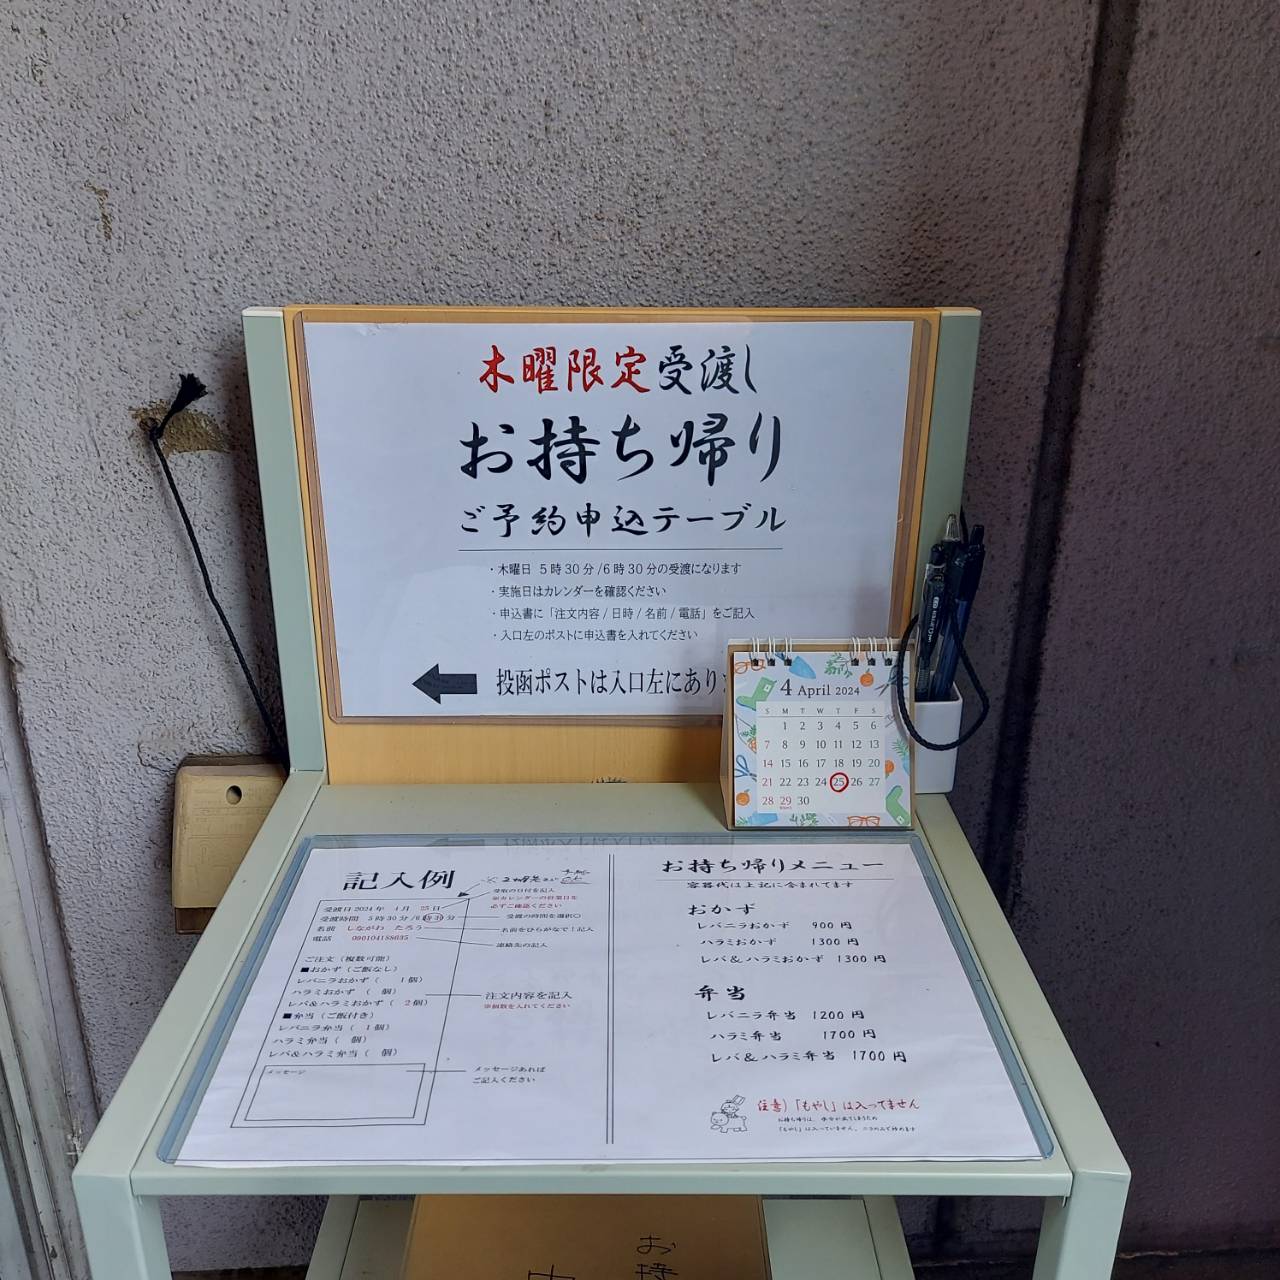 木曜限定受渡し
お持ち帰り
ご予約申込テーブル
・木曜日 5時30分/6時30分の受渡になります
・実施日はカレンダーを確認ください
・申込書に「注文内容/日時/名前/電話」をご記入
・入口左のポストに申込書を入れてください
投函ポストは入口左にあり
4 April 2024
S M T W T F S
1 2 3 4 5 6
7 8 9 10 11 12 13
14 15 16 17 18 19 20
21 22 23 24 25 26 27
28 29 30
記入例
受渡日 2024年 4月 25日
受渡時間 5時30分/6時30分
名前 しながわ たろう
電話 090104188635
ご注文(複数可能)
■おかず(ご飯なし)
レバニラおかず( 1個)
ハラミおかず ( 個)
レバ&ハラミおかず( 2個)
■弁当(ご飯付き)
レバニラ弁当( 1個)
ハラミ弁当( 個)
レバ&ハラミ弁当( 個)
メッセージ
受取の日付を記入
※カレンダーの営業日を
必ずご確認ください
受渡の時間を選択○
名前をひらがなで記入
連絡先の記入
注文内容を記入
※個数を入れてください
メッセージあれば
ご記入ください
お持ち帰りメニュー
容器代は上記に含まれてます
おかず
レバニラおかず 900円
ハラミおかず 1300円
レバ&ハラミおかず 1300円
弁当
レバニラ弁当 1200円
ハラミ弁当 1700円
レバ&ハラミ弁当 1700円
注意)「もやし」は入ってません
お持ち帰りは、水分が出てしまうため
「もやし」は入っていません。ニラのみで炒めます
お
持